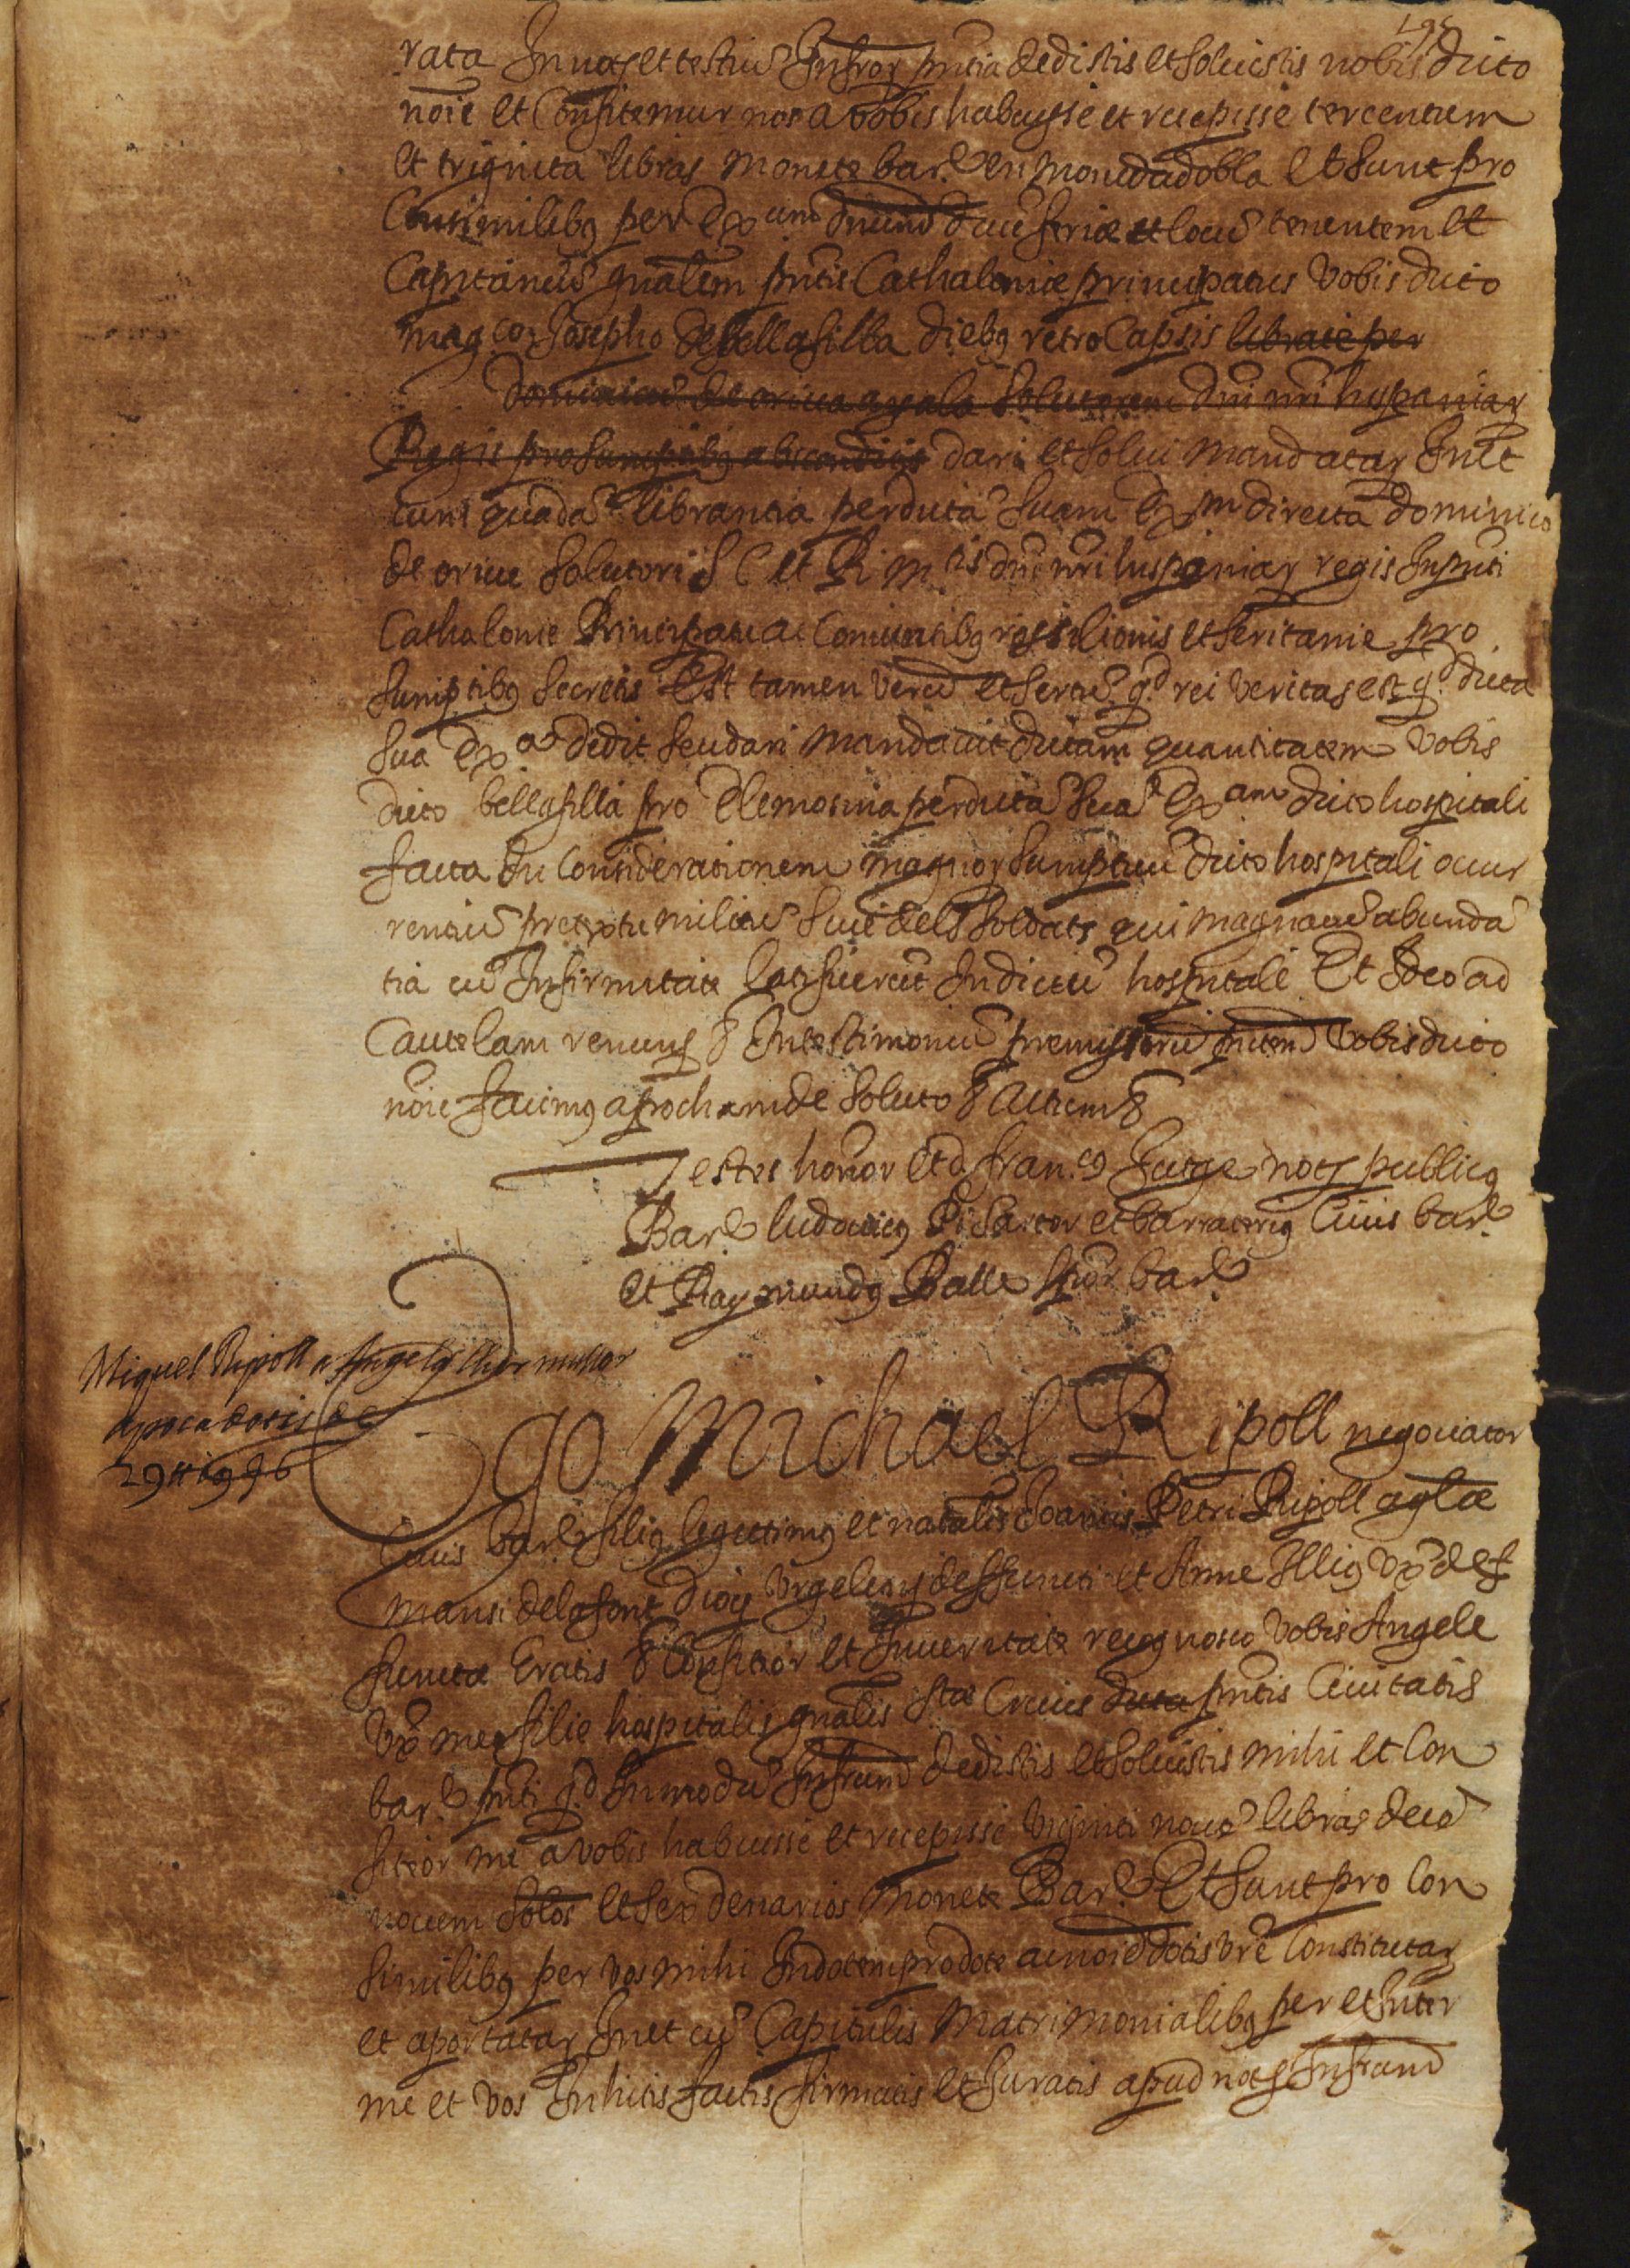 195
rata In noty et testiu Infror pntia dedistis et soluistis nobis dicto
noie et Confitemur nos a vobis habuysse et recepisse tercentum
et triginta libras monete bar. en moneda dobla Et sunt pro
Consimilibq per Exam dnum ducē feriæ et locū tenentem et
Capitaneū gnalem pntis Cathaloniæ principatus vobis dicto
magco Josepho de bellafilla diebq retro Capsis librate per
dominicū de oriue ayala solutorem dni nri hispaniar
Regis pro sumptibq abscondiis dari et solui mandatar In et
cum quadā librantia per dictā suam Exm directa dominico
de oriue solutori S C et R mtis dni nri hispaniar regis In pnti
Cathalonie Principatu ac Comitatibq rossilionis et seritanie pro
sumptibq secretis Est tamen verū et sertū qd rei veritas est qd dicta
sua Exa dedit seu dari mandauit dictam quantitatem vobis
dicto bellafilla pro Elemosina per dictā suā Exam dicto hospitali
facta In Considerationem magnor sumptuū dicto hospitali ocur
rentiū pretextu militū siue dels soldats qui magna cū abundā
tia cū Infirmitate lati fuerūt In dictū hospitale Et Ideo ad
Cautelam renung & In testimoniū premissorū pntem vobis dicto
noie facimq apocham de soluto & Actum &
Testes honor et d. franco Jutge noty publicq
Bar ludouicq Pi sartor et barraterig Ciuis bar
et Raymundq Balle scor bar
Miquel Ripoll a Angela Muller
apoca dotis de
29 ll 19 s 6
Ego Michael Ripoll negociator
Ciuis bar filiq legitimq et naturalis Joannis Petri Ripoll aglæ
mansi de la font diocs Vrgelensis deffuncti et Anne Illiq vx def
functæ Gratis & Confiteor et In veritate recognosco vobis Angele
vx mee filie hospitalis gnalis stæ Crucis dicta pntis Ciuitatis
bar pnti qd In modū Infrum dedistis et soluistis mihi et Con
fiteor me a vobis habuisse et recepisse viginti nouē libras decē
nouem solos et sex denarios monete Bar Et sunt pro Con
similibq per vos mihi In dotem pro dote ac noie dotis vre Constitutar
et aportatar In et cū Capitulis Matrimonialibq per et Inter
me et vos Inhitis factis firmatis et Juratis apud noty Infrum